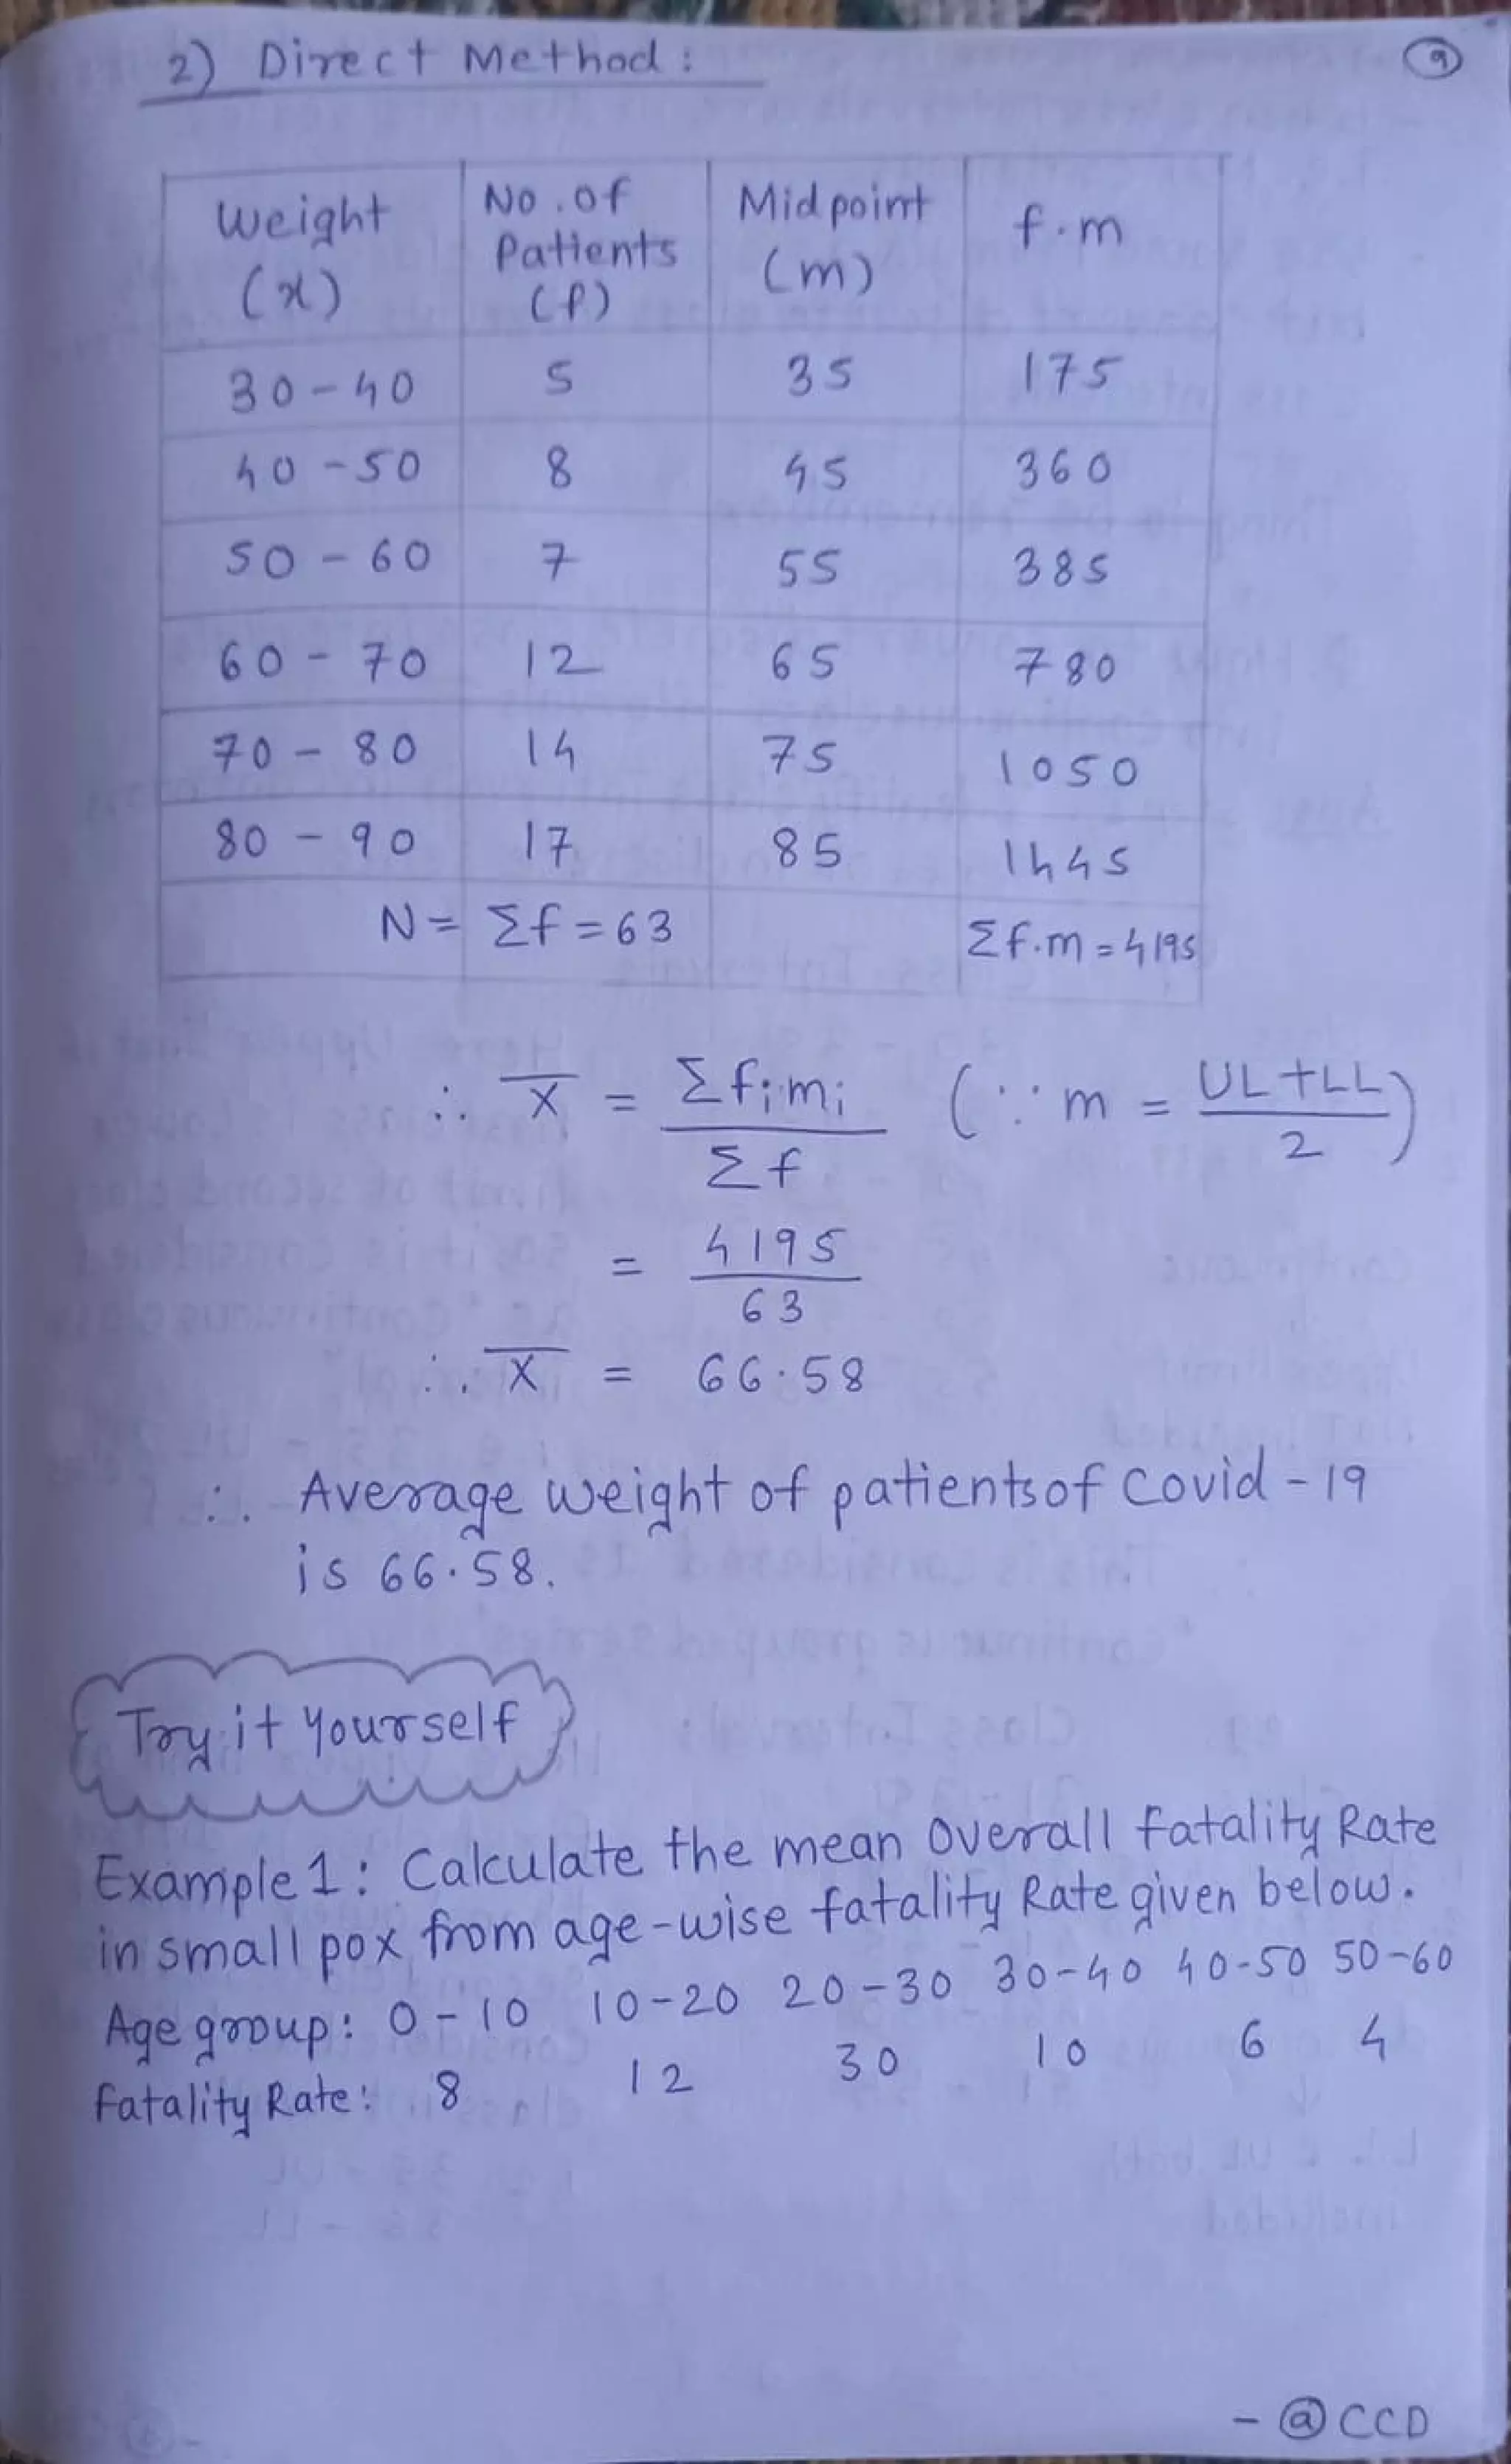 2) Direct Method :
9
Weight (x) No. of Patients (f) Midpoint (m) f.m
30-40 5 35 175
40-50 8 45 360
50-60 7 55 385
60-70 12 65 780
70-80 14 75 1050
80-90 17 85 1445
N= Σf=63 Σf.m=4195
∴ X̄ = Σfimi / Σf (∵ m = UL+LL / 2)
= 4195 / 63
∴ X̄ = 66.58
∴ Average weight of patients of Covid-19
is 66.58.
Try it yourself
Example 1: Calculate the mean overall fatality Rate
in small pox from age-wise fatality Rate given below.
Age group: 0-10 10-20 20-30 30-40 40-50 50-60
fatality Rate: 8 12 30 10 6 4
- @CCD